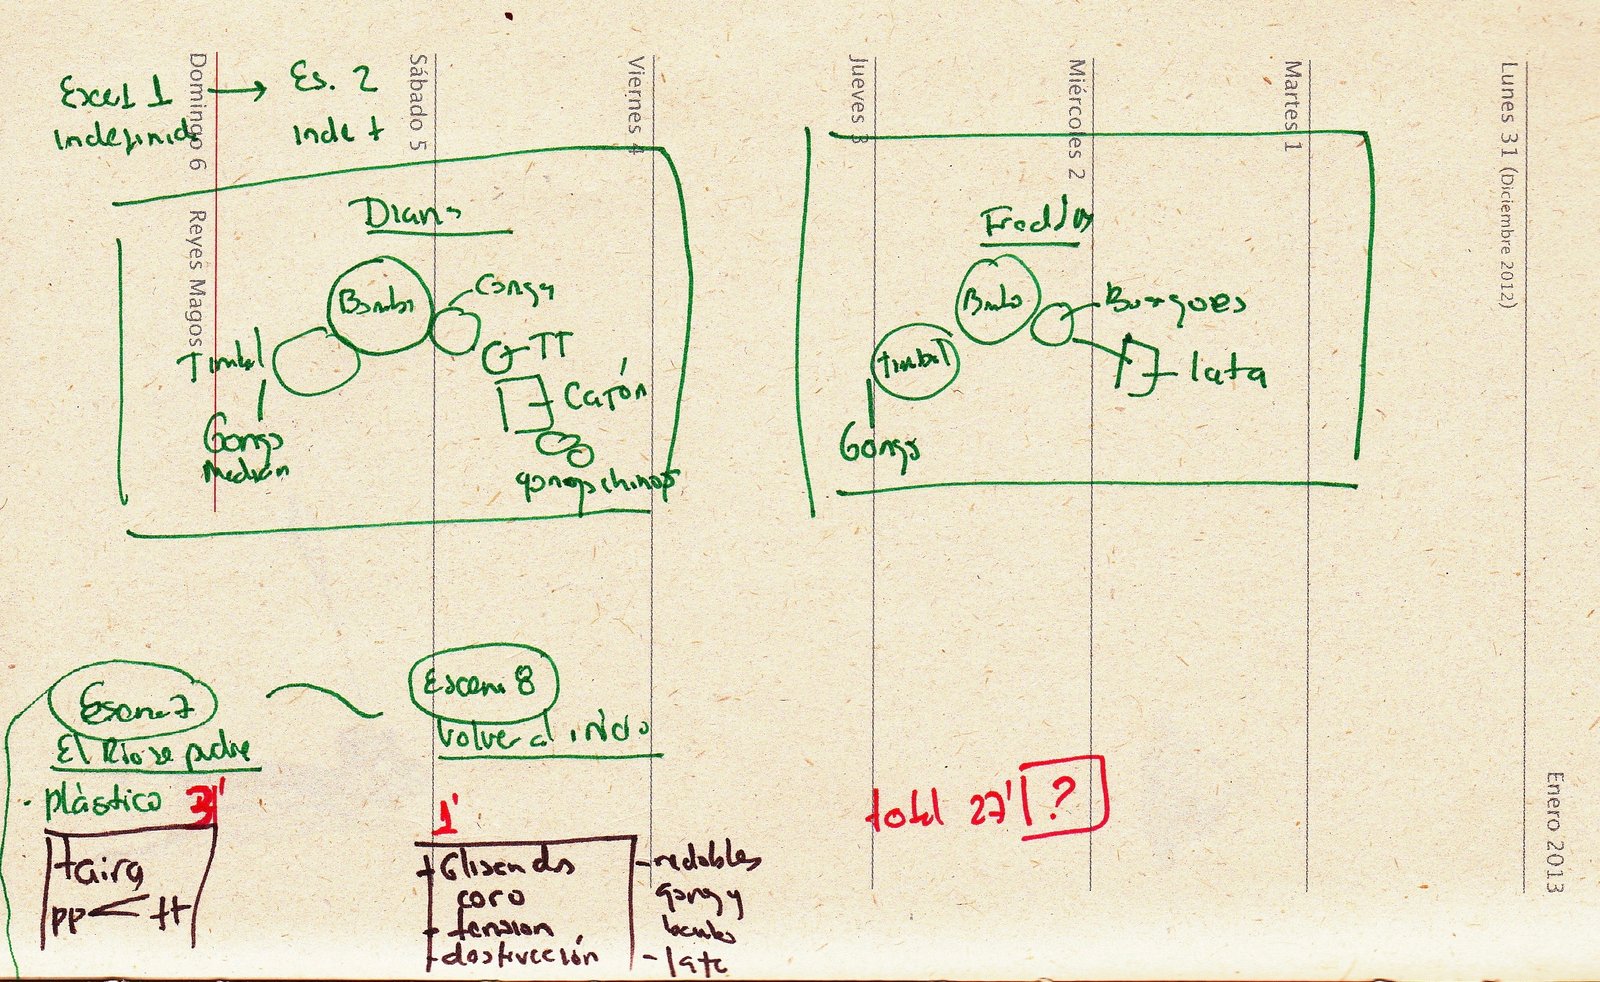 Domingo 6 Reyes Magos
Sábado 5
Viernes 4
Jueves 3
Miércoles 2
Martes 1
Lunes 31 (Diciembre 2012)
Enero 2013
Es. 2
Indefinido
Inde f
Diana
Bombo
Conga
TT
Timbal
Cajón
Gongs
median
gongs chinos
Bombo
Timbal
lata
Gongs
Escena 7
El Río se pudre
plástico 3'
taira
pp < ff
Escena 8
Volver al inicio
1'
Glisendos
coro
- tension
- destrucción
- redobles
gong y
bombo
- lata
total 27' ?